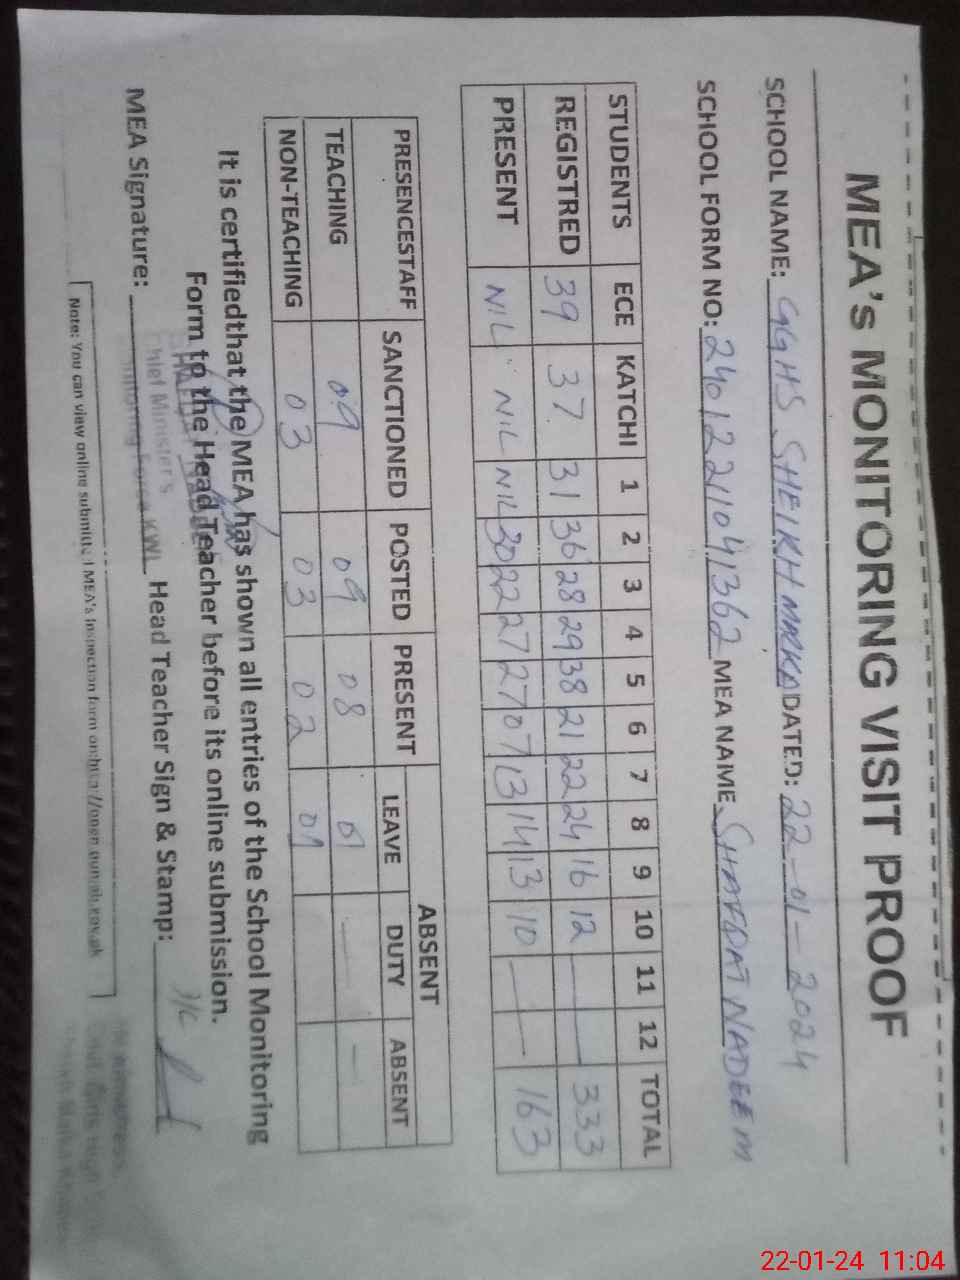 MEA's MONITORING VISIT PROOF
SCHOOL NAME: GGHS SHEIKH MALKA DATED: 22-01-2024
SCHOOL FORM NO: 24012211041362 MEA NAME SHAFQAT NADEEM
STUDENTS ECE KATCHI 1 2 3 4 5 6 7 8 9 10 11 12 TOTAL
REGISTRED 39 37 31 36 28 29 38 21 22 24 16 12 — 333
PRESENT NIL NIL NIL 30 22 27 27 07 13 14 13 10 — 163
PRESENCESTAFF SANCTIONED POSTED PRESENT ABSENT
LEAVE DUTY ABSENT
TEACHING 09 09 08 01 — —
NON-TEACHING 03 03 02 01
It is certifiedthat the MEA has shown all entries of the School Monitoring
Form to the Head Teacher before its online submission.
Chief Minister's
Monitoring Force KWL
MEA Signature: Head Teacher Sign & Stamp: I/C
Note: You can view online submitted MEA's Inspection form on:http://open.punjab.gov.pk
22-01-24 11:04